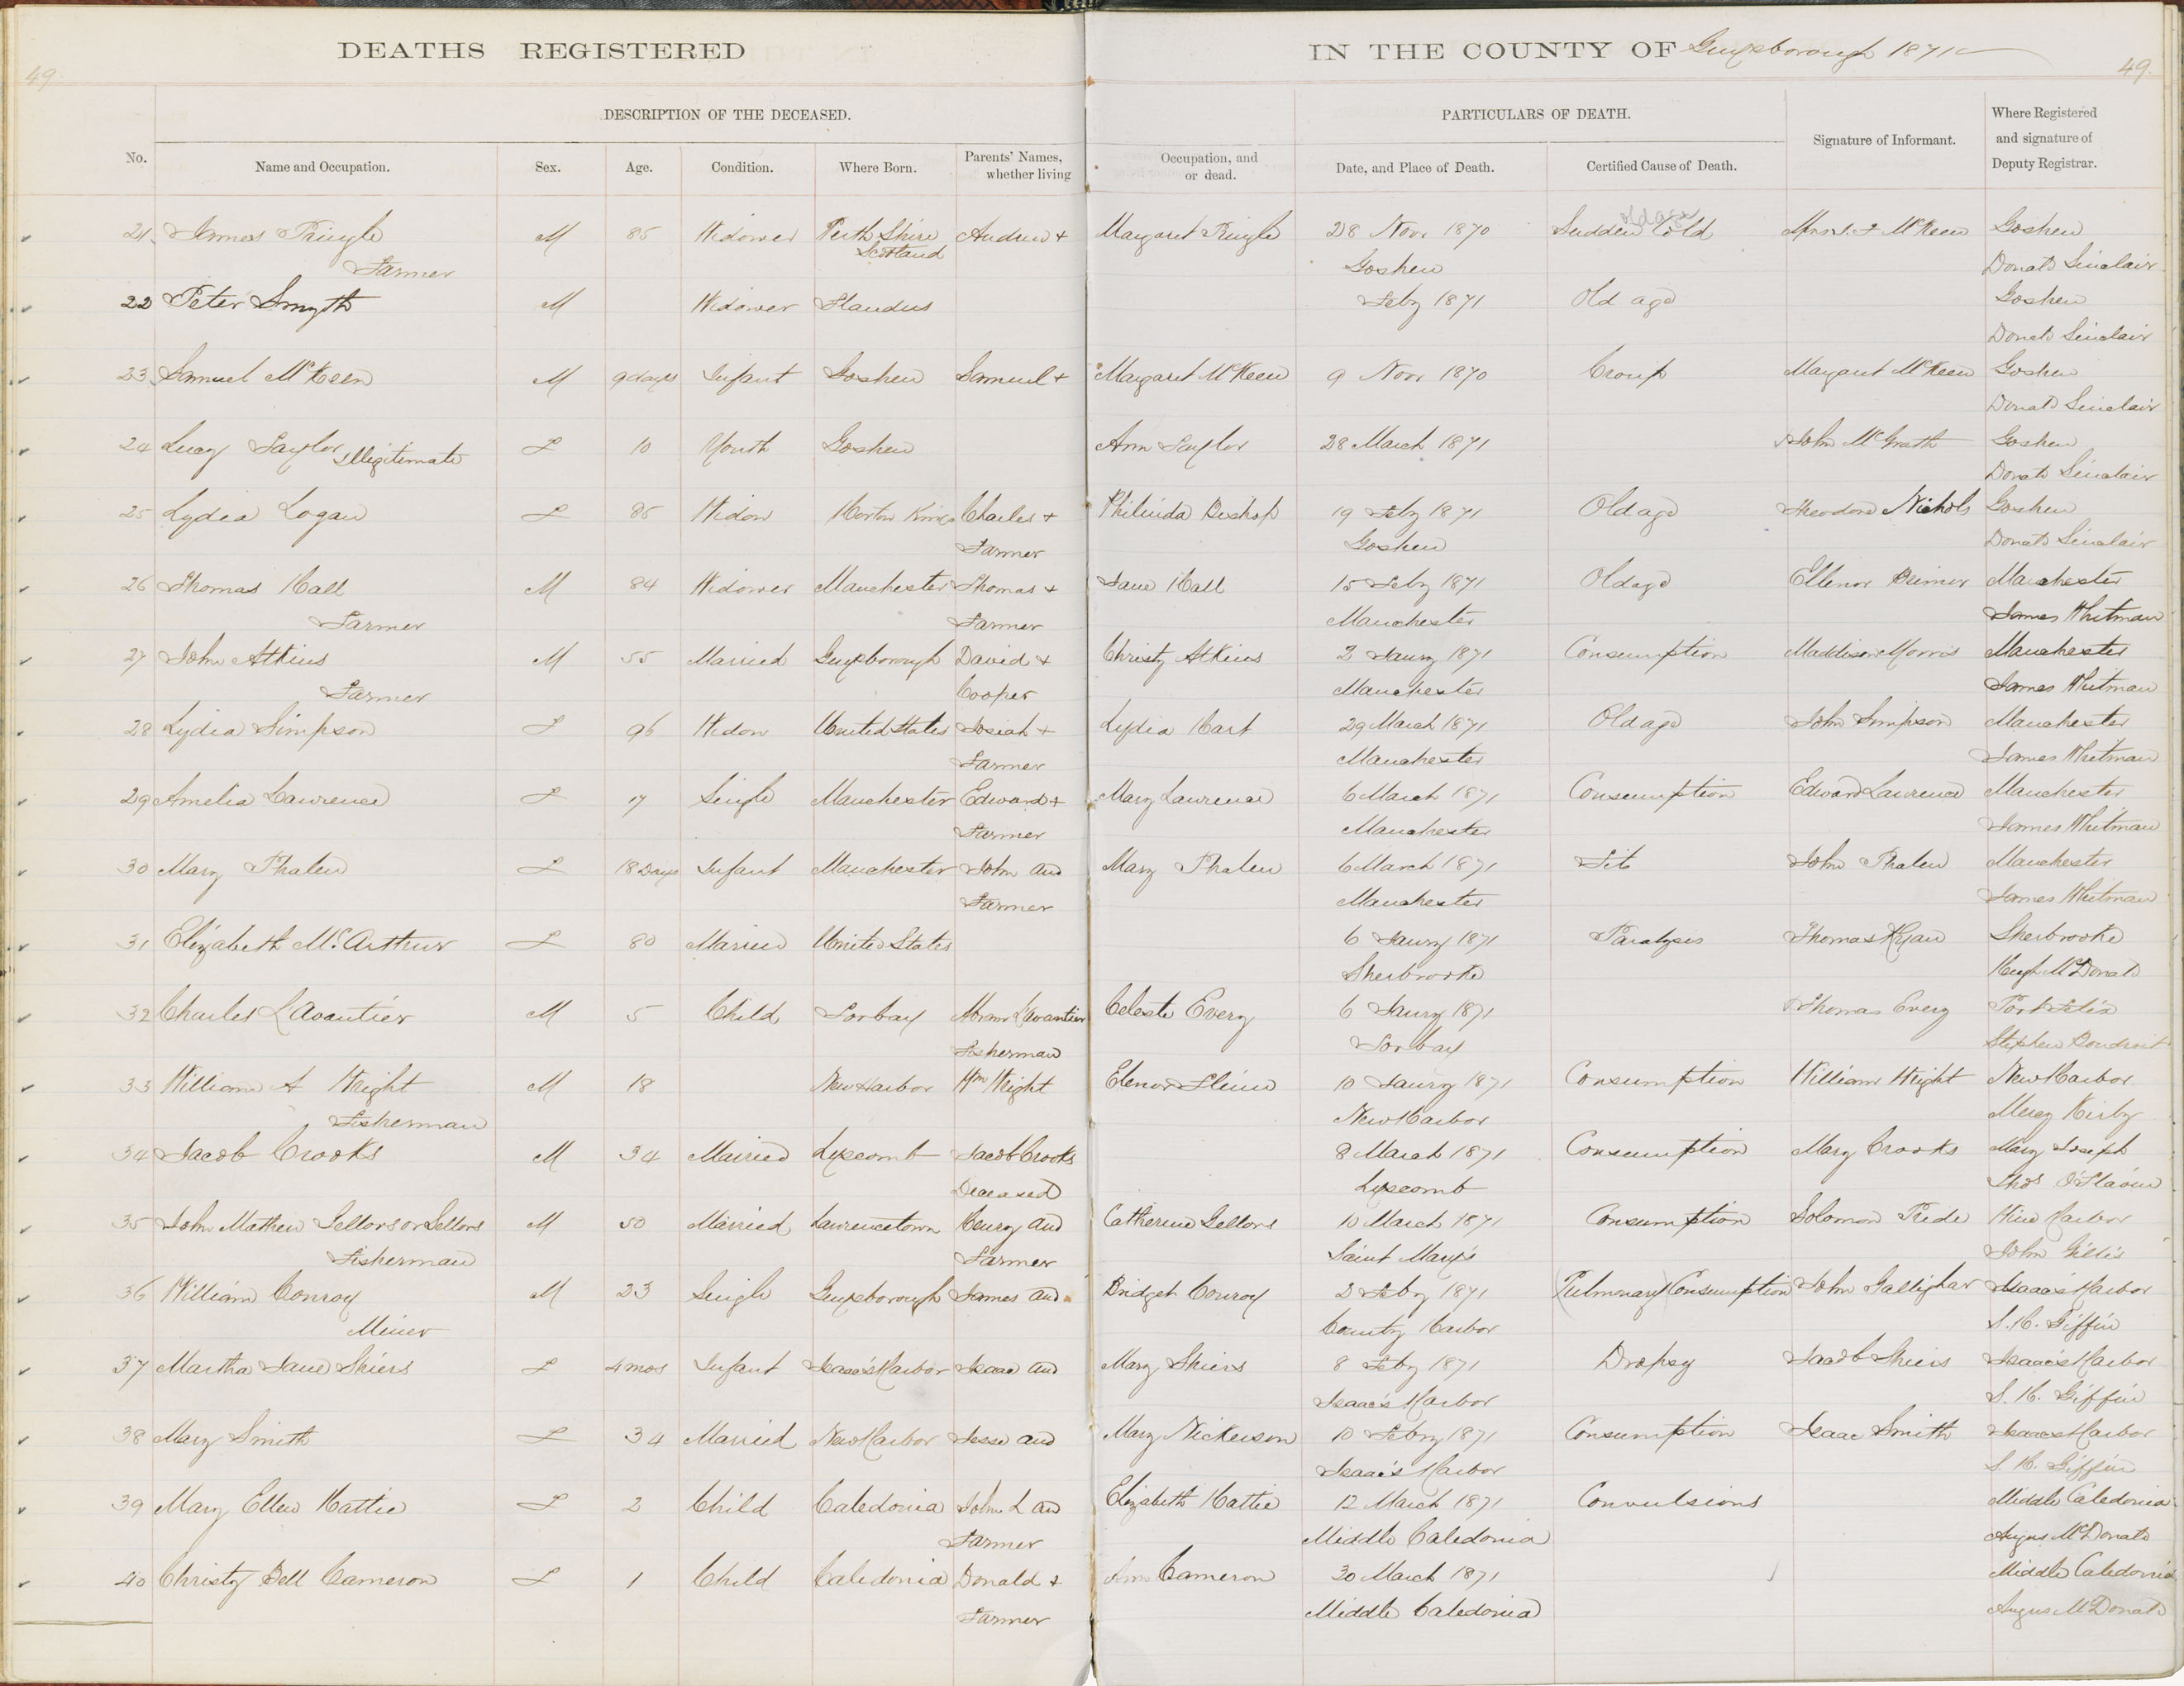 DEATHS REGISTERED IN THE COUNTY OF Guysborough 1871
49. 49.
DESCRIPTION OF THE DECEASED. PARTICULARS OF DEATH.
No. Name and Occupation. Sex. Age. Condition. Where Born. Parents' Names, whether living Occupation, and or dead. Date, and Place of Death. Certified Cause of Death. Signature of Informant. Where Registered and signature of Deputy Registrar.
21 James Pringle M 85 Widower Perth Shire Andrew + Margaret Pringle 28 Novr 1870 Sudden Cold old age McKeen Goshen
Farmer Scotland Goshen Donald Sinclair
22 Peter Smyth M Widower Flandus Feby 1871 Old age Goshen
Donald Sinclair
23 Samuel McKeen M 9 days Infant Goshen Samuel + Margaret McKeen 9 Novr 1870 Croup Margaret McKeen Goshen
Donald Sinclair
24 Lucy Taylor Illegitimate F 10 Youth Goshen Ann Taylor 28 March 1871 John McGrath Goshen
Donald Sinclair
25 Lydia Logan F 85 Widow Horton Kings Charles + Philinda Bishop 19 Feby 1871 Old age Theodore Nichols Goshen
Farmer Goshen Donald Sinclair
26 Thomas Hall M 84 Widower Manchester Thomas + Jane Hall 15 Feby 1871 Old age Ellenor Manchester
Farmer Farmer Manchester James Whitman
27 John Atkins M 55 Married Guysborough David + Christy Atkins 3 Jaury 1871 Consumption Maddison Morris Manchester
Farmer Cooper Manchester James Whitman
28 Lydia Simpson F 96 Widow United States Josiah + Lydia Hart 29 March 1871 Old age John Simpson Manchester
Farmer Manchester James Whitman
29 Amelia Lawrence F 17 Single Manchester Edward + Mary Lawrence 6 March 1871 Consumption Edward Lawrence Manchester
Farmer Manchester James Whitman
30 Mary Phalen F 18 Days Infant Manchester John and Mary Phalen 6 March 1871 Fit John Phalen Manchester
Farmer Manchester James Whitman
31 Elizabeth McArthur F 80 Married United States 6 Jaury 1871 Paralysis Thomas Ryan Sherbrooke
Sherbrooke Hugh McDonald
32 Charles LAvantier M 5 Child Torbay Abram LAvantier Celeste Every 6 Jaury 1871 Thomas Every Port Felix
Fisherman Torbay Stephen Boudroit
33 William A Wright M 18 New Harbor Wm Wright Elenor Flinn 10 Jaury 1871 Consumption William Wright New Harbor
Fisherman New Harbor Mercy Kirby
34 Jacob Crooks M 34 Married Lyscomb Jacob Crooks 8 March 1871 Consumption Mary Crooks Mary Joseph
Deceased Lyscomb Thos O'Flavin
35 John Mathew Gellors or Sellors M 50 Married Lawrencetown Henry and Catherine Gellors 10 March 1871 Consumption Solomon Pride Wine Harbor
Fisherman Farmer Saint Mary's John Gillis
36 William Conroy M 23 Single Guysborough James and Bridget Conroy 2 Feby 1871 (Pulmonary) Consumption John Gallighar Isaac's Harbor
Miner County Harbor S. H. Giffin
37 Martha Jane Shiers F 4 mos Infant Isaac's Harbor Isaac and Mary Shiers 8 Feby 1871 Dropsy Jacob Shiers Isaac's Harbor
Isaac's Harbor S. H. Giffin
38 Mary Smith F 34 Married New Harbor Jesse and Mary Nickerson 10 Febry 1871 Consumption Isaac Smith Isaac's Harbor
Isaac's Harbor S. H. Giffin
39 Mary Ellen Hattie F 2 Child Caledonia John L and Elizabeth Hattie 12 March 1871 Convulsions Middle Caledonia
Farmer Middle Caledonia Angus McDonald
40 Christy Bell Cameron F 1 Child Caledonia Donald + Ann Cameron 30 March 1871 Middle Caledonia
Farmer Middle Caledonia Angus McDonald